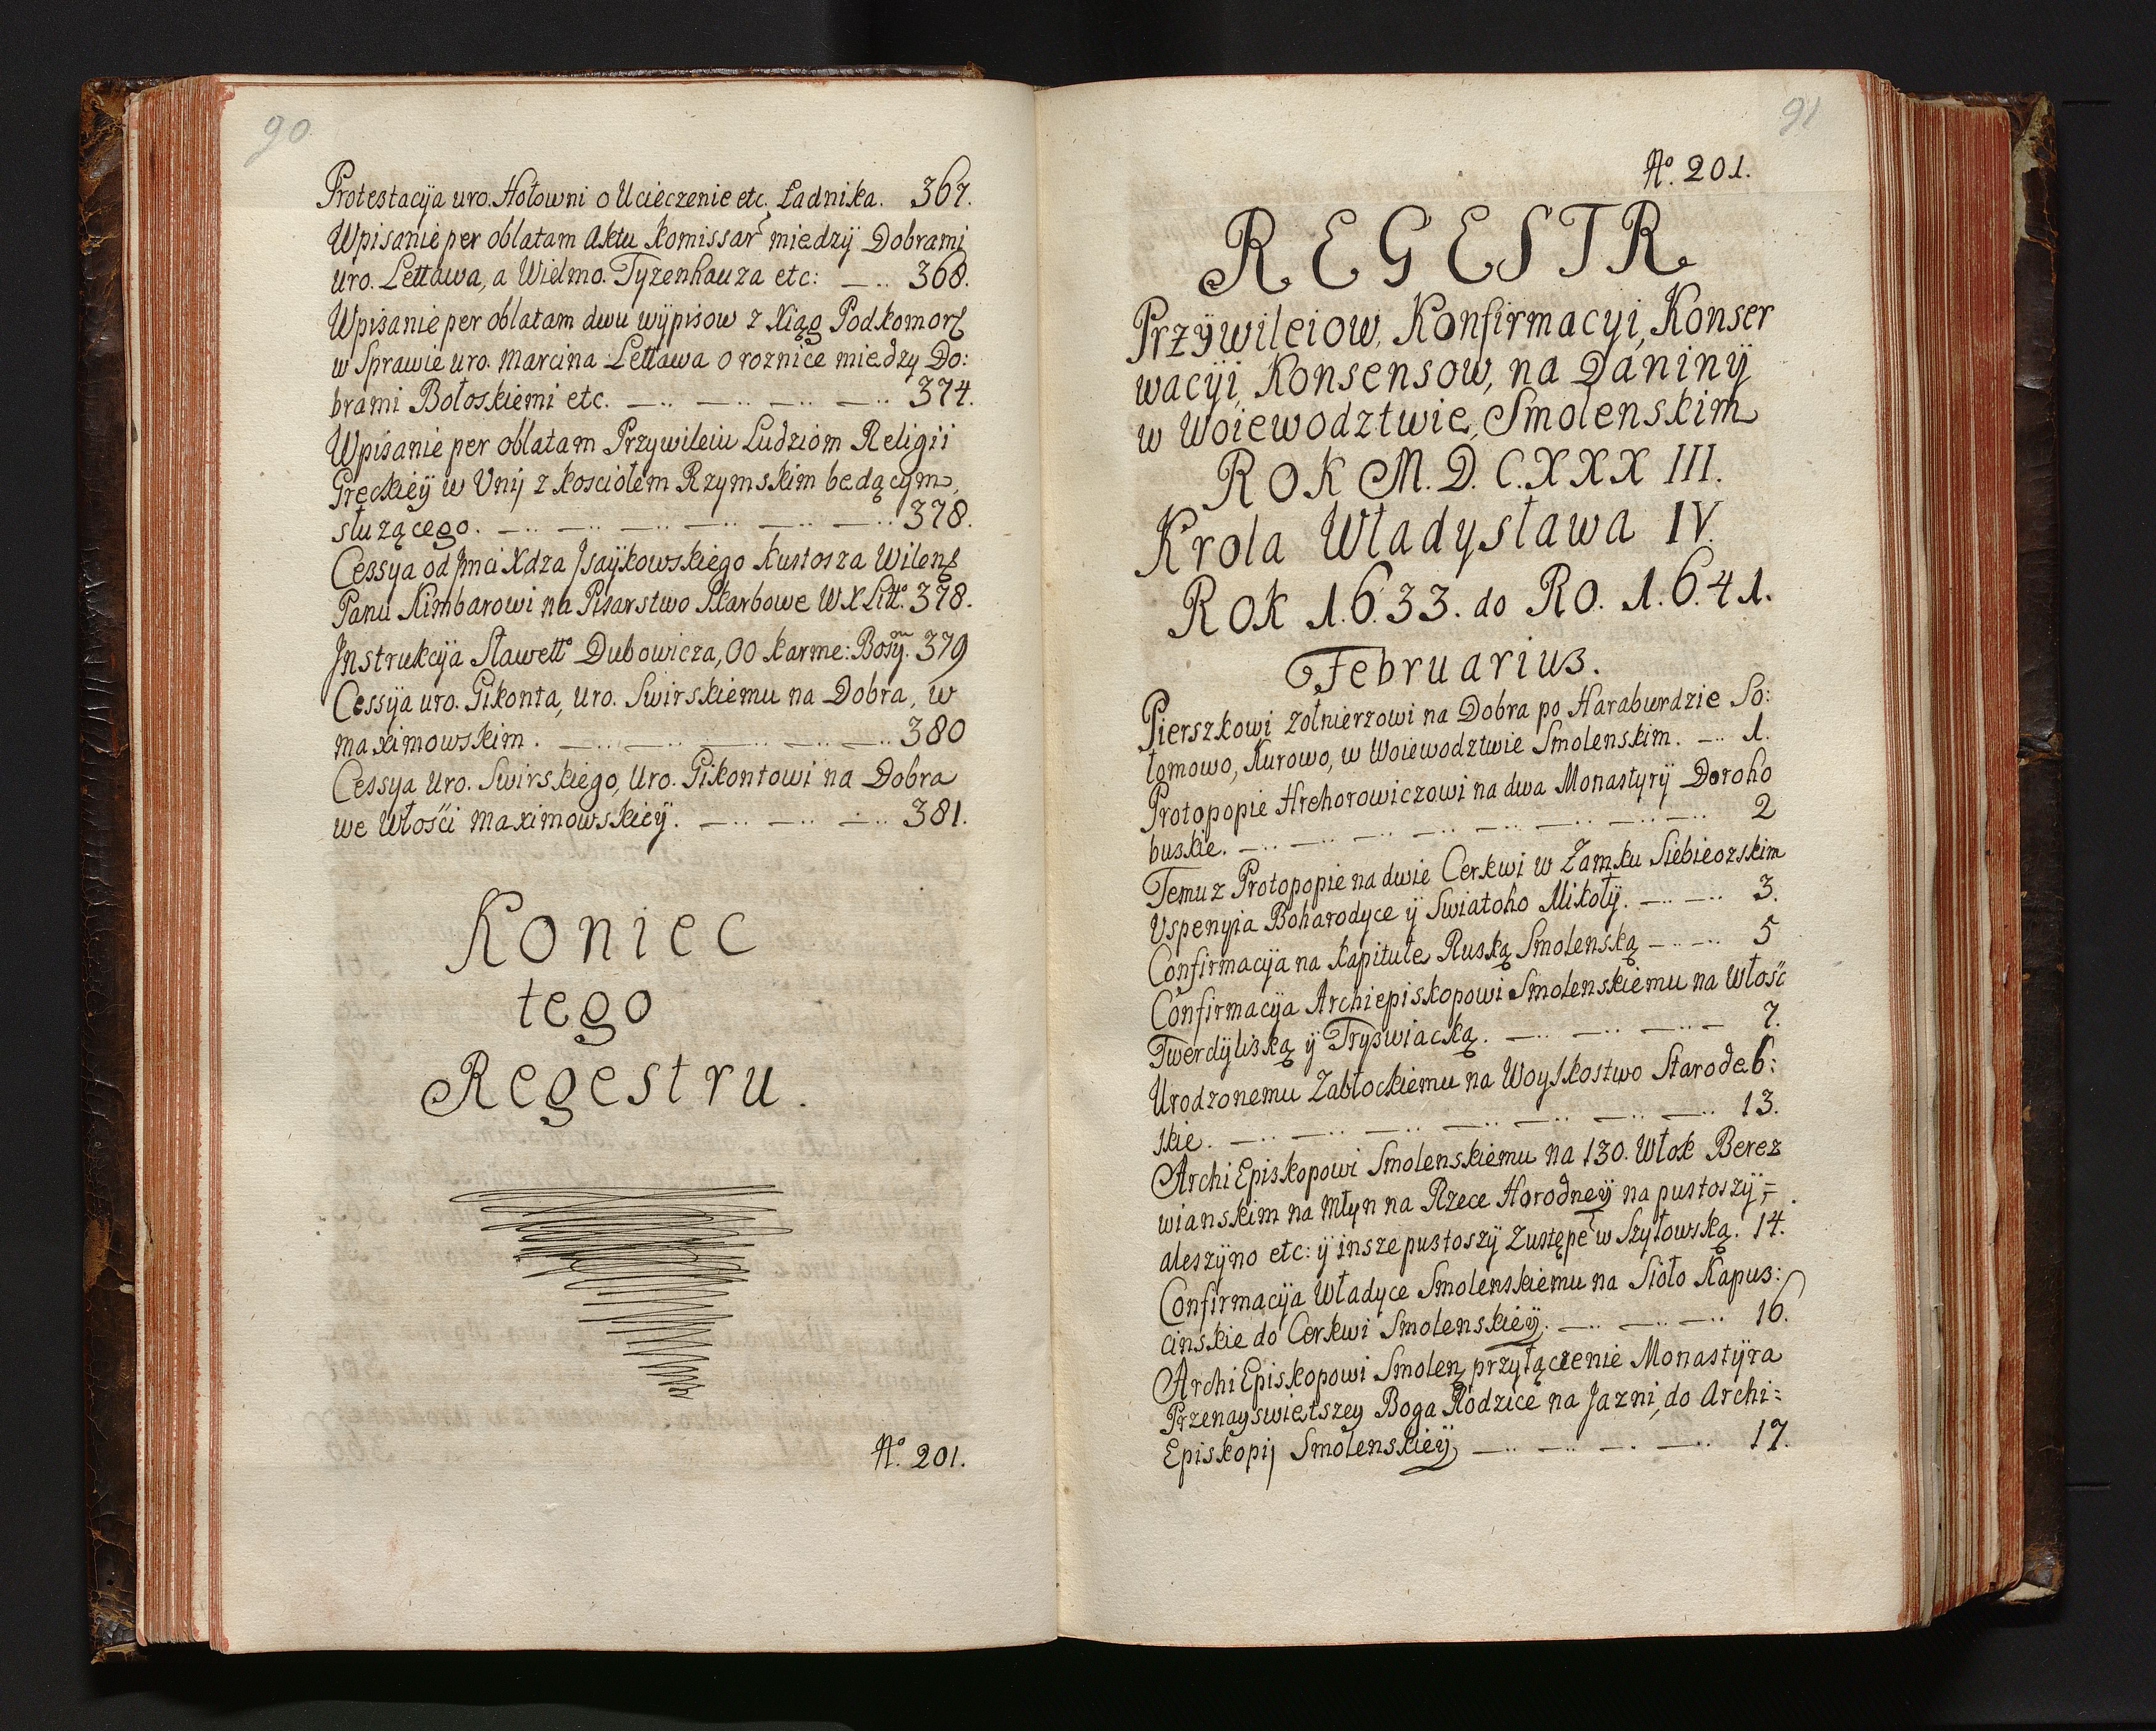 90
Protestacÿa uro. Hołowni o Ucieczenie etc. Ładnika. 367.
Wpisanie per oblatam Aktu Komissar miedzÿ Dobrami
uro. Lettawa, a Wielmo. Tyzenhauza etc: 368.
Wpisanie per oblatam dwu wÿpisow z Xiąg Podkomor
w Sprawie uro. Marcina Lettawa o roznice miedzy Do:
brami Bołoskiemi etc. 374.
Wpisanie per oblatam Przywileiu Ludziom Religii
Greckieÿ w Unij z kosciołem Rzymskim bedącym,
służącego. 378.
Cessya od Jmci Xdza Jsaÿkowskiego Kustosza Wilen
Panu Kimbarowi na Pisarstwo Skarbowe WX Litto. 378.
Jnstrukcÿa Sławetto Dubowicza, OO karme: Bosÿm. 379
Cessÿa uro. Gikonta, uro. Swirskiemu na Dobra, w
maximowskim. 380
Cessya Uro. Swirskiego, Uro. Gikontowi na Dobra
we Włości maximowskieÿ. 381.
Koniec
tego
Regestru.
No. 201.
91
No. 201.
REGESTR
Przÿwileiow, Konfirmacyi, Konser
wacÿi, Konsensow, na Daninÿ
w Woiewodztwie, Smolenskim
ROK M.D.C.XXX III.
Krola Władysława IV.
ROK 1.6.33. do RO. 1.6.41.
Februarius.
Pierszkowi żołnierzowi na Dobra po Haraburdzie So:
łomowo, Kurowo, w Woiewodztwie Smolenskim. 1.
Protopopie Hrehorowiczowi na dwa Monastyrÿ Doroho
buskie. 2
Temuz Protopopie na dwie Cerkwi w Zamku Siebieozskim
Uspenyia Boharodyce ÿ Swiatoho Mikołÿ. 3.
Confirmacÿa na Kapitułe Ruską Smolenską 5
Confirmacÿa Archiepiskopowi Smolenskiemu na Włość
Twerdÿliską ÿ Tryswiacką. 7.
Urodzonemu Zabłockiemu na Woyskostwo Starodeb:
skie. 13.
Archi Episkopowi Smolenskiemu na 130. Włok Berez
wianskim na Młyn na Rzece Horodneÿ na pustoszÿ=
aleszÿno etc: ÿ insze pustoszÿ Zustępe w Szyłowską. 14.
Confirmacÿa Władyce Smolenskiemu na Sioło Kapus:
cinskie do Cerkwi Smolenskieÿ. 16.
Archi Episkopowi Smolen przyłączenie Monastÿra
Przenayswietszey Boga Rodzice na Jazni, do Archi=
Episkopij Smolenskieÿ 17.